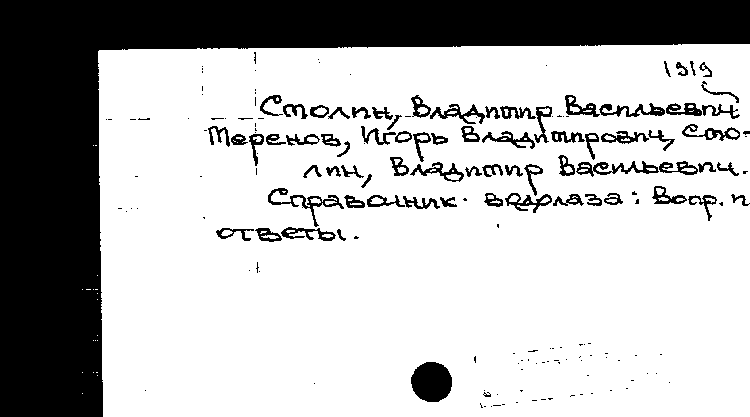 1919
Столин, Владимир Васильевич
Меренов, Игорь Владимирович, Сто-
лин, Владимир Васильевич.
Справочник водолаза: Вопр. и
ответы.